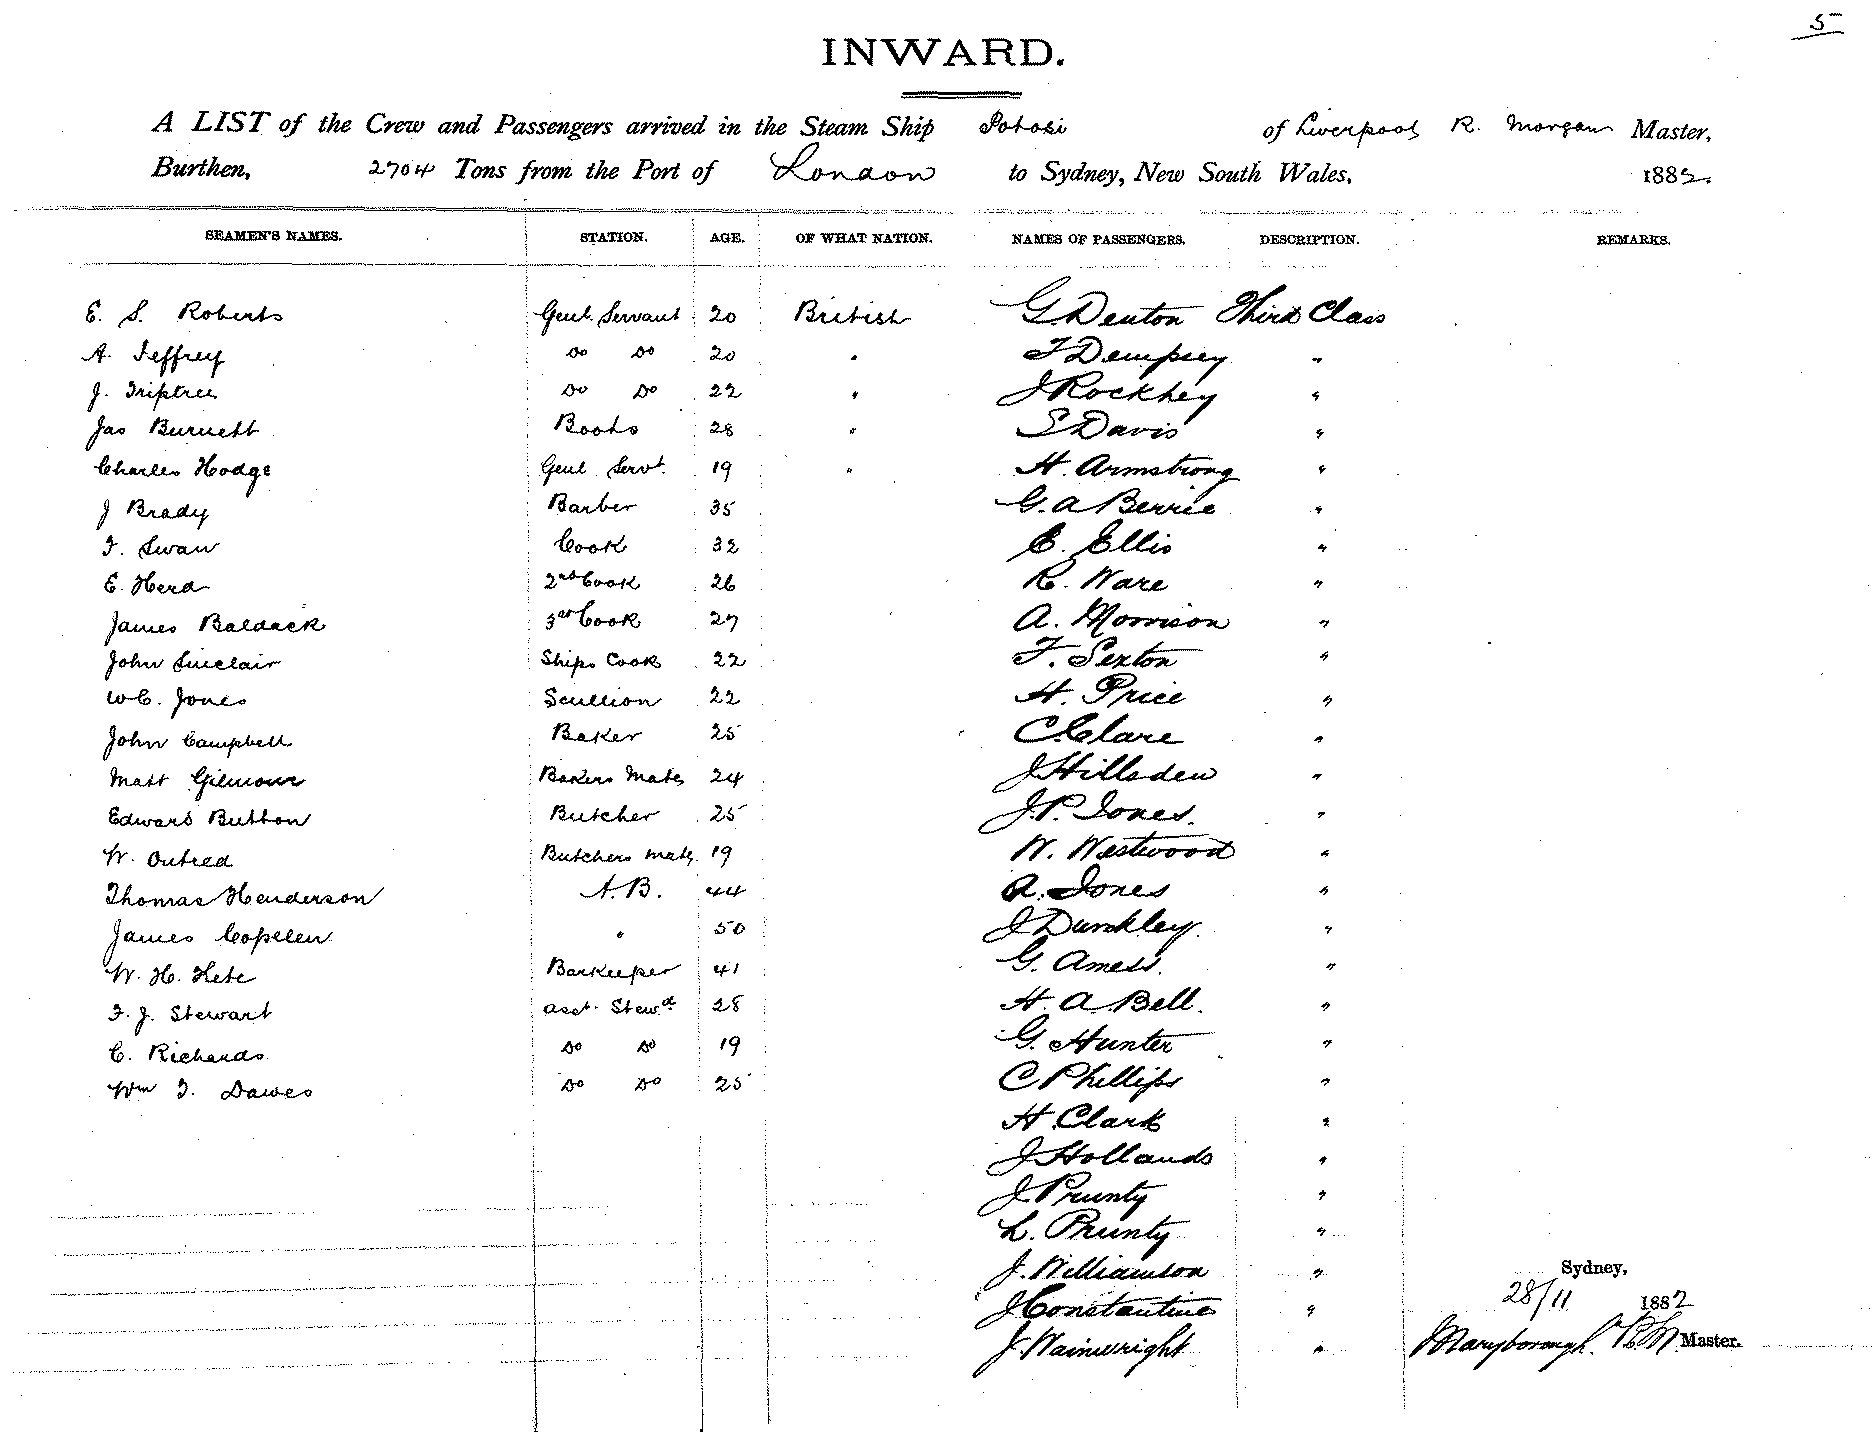 5
INWARD.
A LIST of the Crew and Passengers arrived in the Steam Ship Potosi of Liverpool R. Morgan Master,
Burthen, 2704 Tons from the Port of London to Sydney, New South Wales, 1882.
SEAMEN'S NAMES. STATION. AGE. OF WHAT NATION. NAMES OF PASSENGERS. DESCRIPTION. REMARKS.
E. S. Roberts Genl. Servant 20 British G. Denton Third Class
A. Jeffrey Do Do 20 " T Dempsey "
J. Triptree Do Do 22 " J Rockhey "
Jas Burnett Boots 28 " S Davis "
Charles Hodge Genl Servt. 19 " H. Armstrong "
J Brady Barber 35 G. A Berrie "
F. Swan Cook 32 E. Ellis "
E. Herd 2nd Cook 26 R. Ware "
James Baldack 3rd Cook 27 A. Morrison "
John Sinclair Ships Cook 22 F. Sexton "
W C. Jones Scullion 22 H. Price "
John Campbell Baker 25 C. Clare "
Matt Gilmour Bakers Mate 24 J Hillsden "
Edward Button Butcher 25 J. P. Jones. "
W. Outred Butchers Mate 19 W. Westwood "
Thomas Henderson A.B. 44 A. Jones "
James Copelen " 50 J Dunkley. "
W. H. Barkeeper 41 G. Amess. "
F. J. Stewart Asst. Stewd 28 H. A Bell. "
C. Richards Do Do 19 G. Hunter "
Wm T. Dawes Do Do 25 C Phillips "
H Clark "
J Hollands "
J. Prunty "
L. Prunty "
J. Williamson "
J Constantine "
J. Wainwright "
Sydney,
28/11 1882
Maryborough. Master.